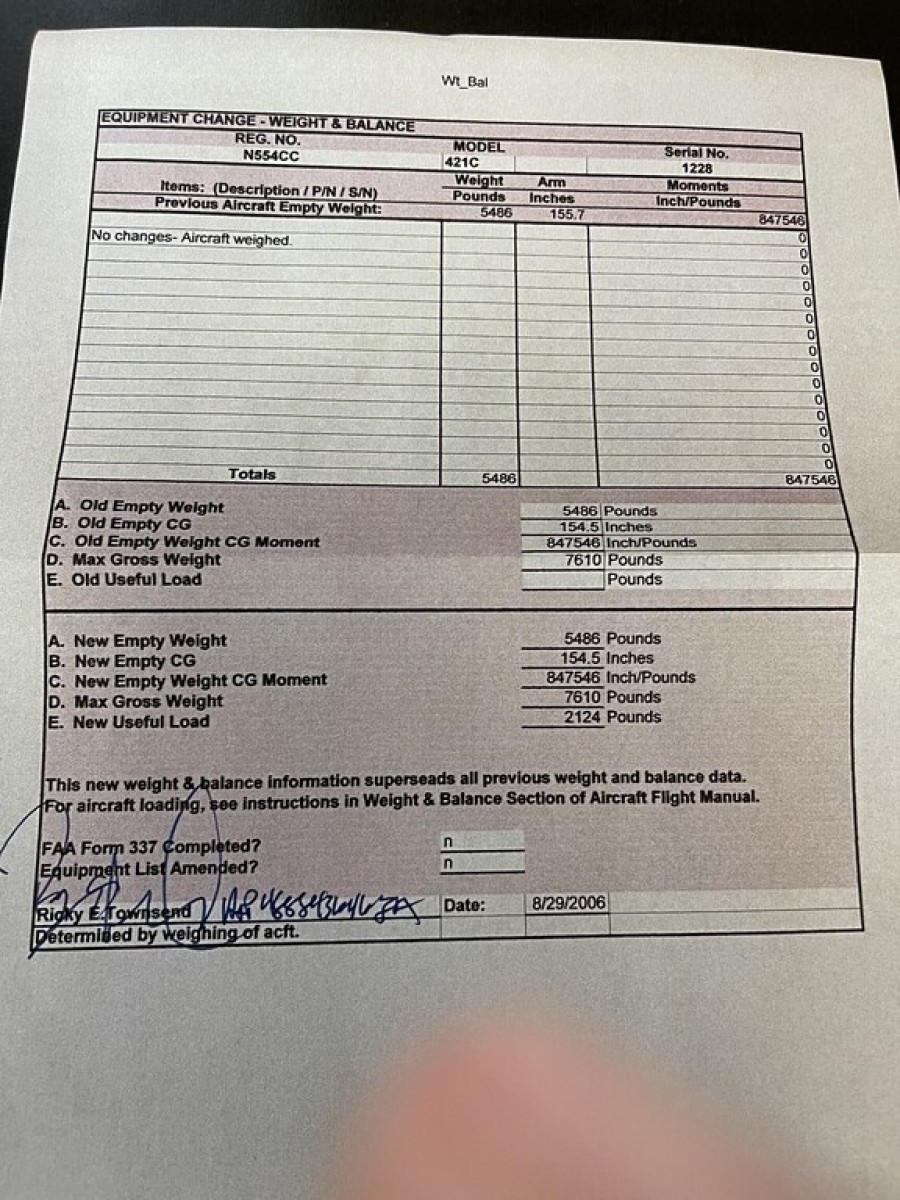 Wt_Bal
EQUIPMENT CHANGE - WEIGHT & BALANCE
REG. NO. MODEL Serial No.
N554CC 421C 1228
Items: (Description / P/N / S/N) Weight Pounds Arm Inches Moments Inch/Pounds
Previous Aircraft Empty Weight: 5486 155.7 847546
No changes- Aircraft weighed. 0
0
0
0
0
0
0
0
0
0
0
0
0
0
0
Totals 5486 847546
A. Old Empty Weight 5486 Pounds
B. Old Empty CG 154.5 Inches
C. Old Empty Weight CG Moment 847546 Inch/Pounds
D. Max Gross Weight 7610 Pounds
E. Old Useful Load Pounds
A. New Empty Weight 5486 Pounds
B. New Empty CG 154.5 Inches
C. New Empty Weight CG Moment 847546 Inch/Pounds
D. Max Gross Weight 7610 Pounds
E. New Useful Load 2124 Pounds
This new weight & balance information superseads all previous weight and balance data.
For aircraft loading, see instructions in Weight & Balance Section of Aircraft Flight Manual.
FAA Form 337 Completed? n
Equipment List Amended? n
Ricky E Townsend Date: 8/29/2006
Determined by weighing of acft.